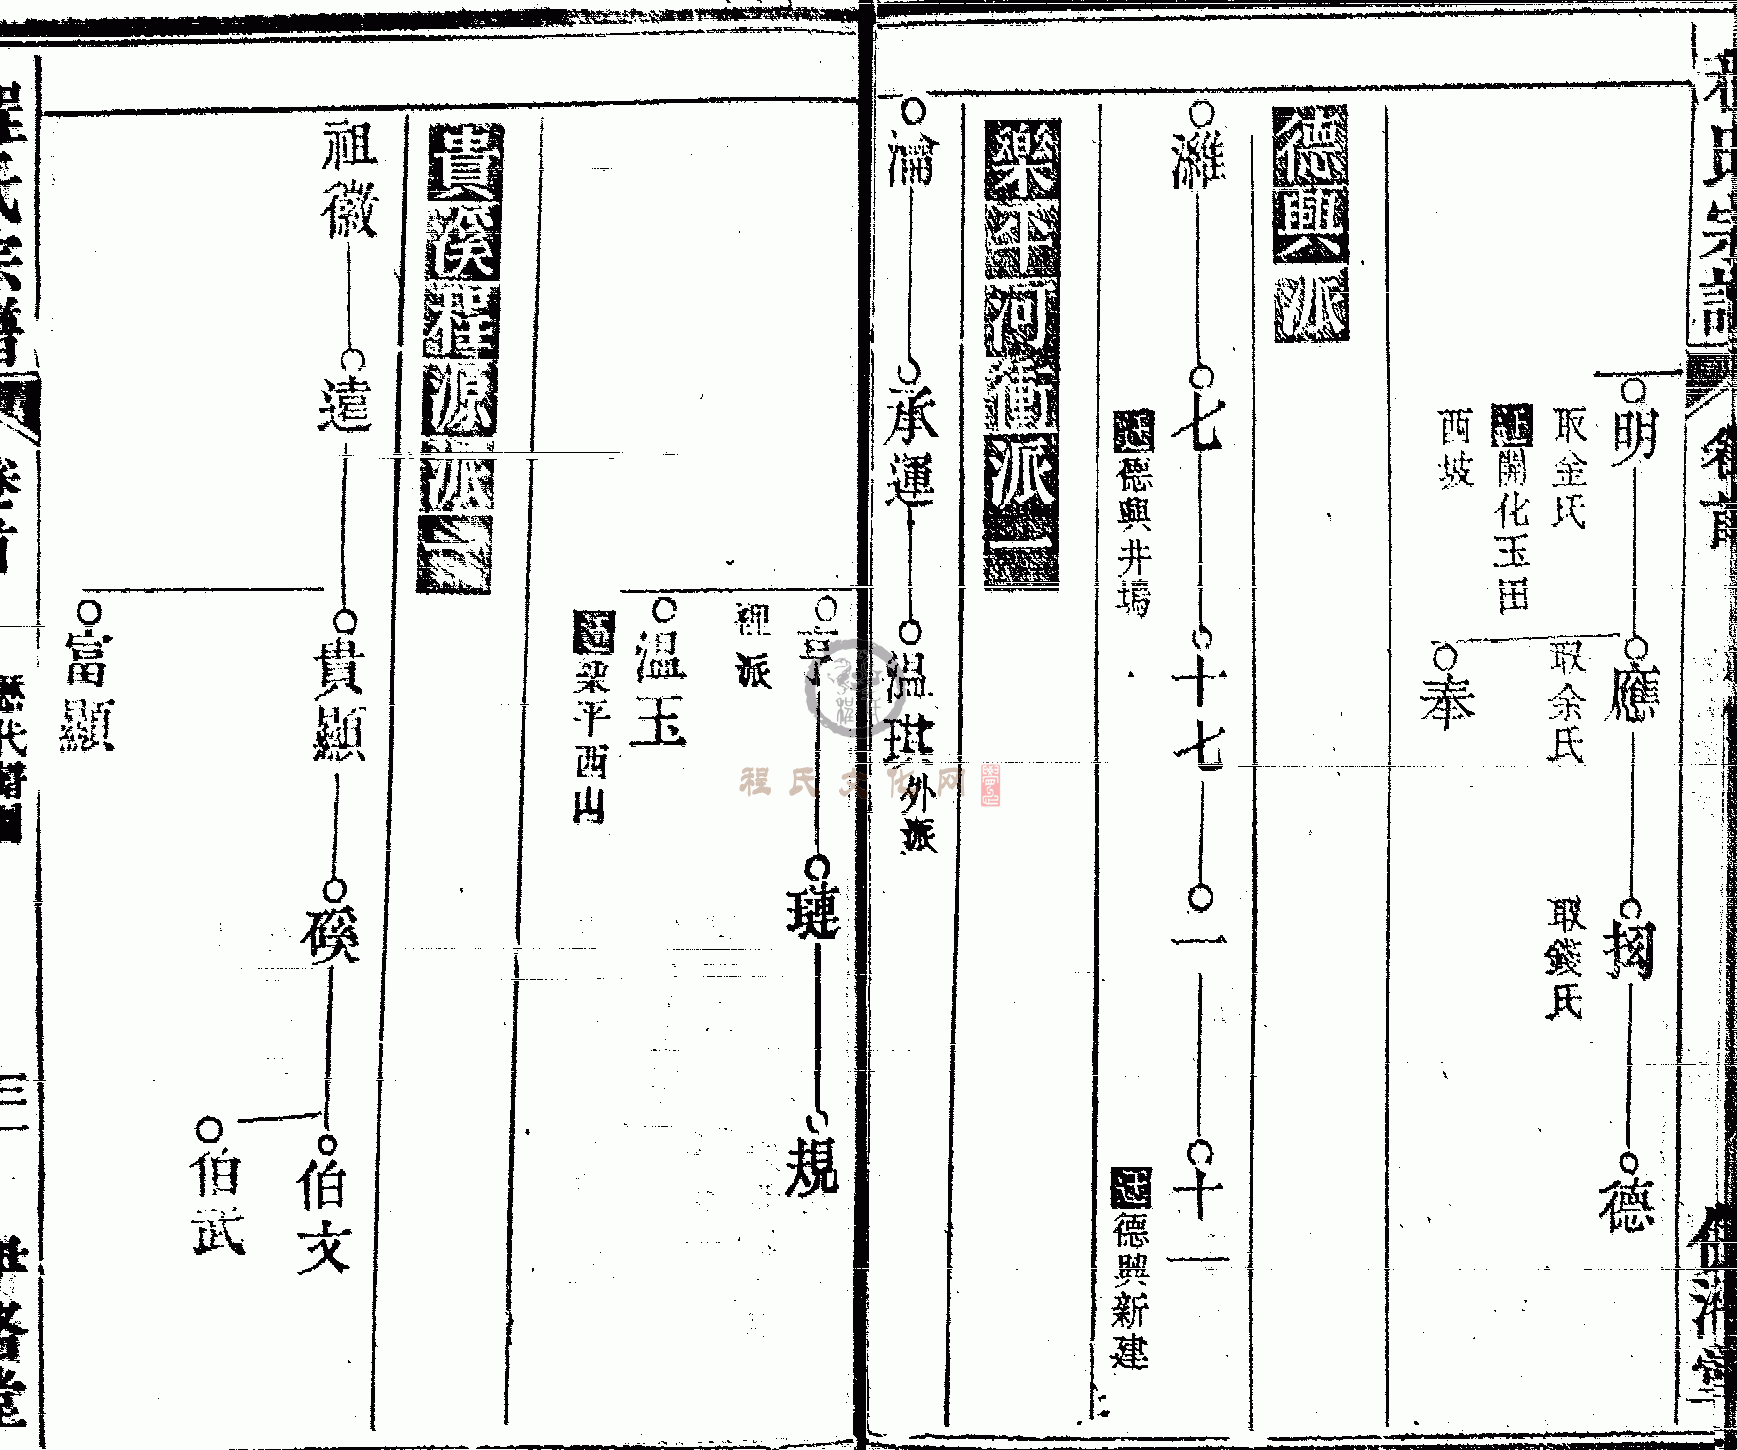 明
取金氏
遷開化玉田
西坡
應
取余氏
奉
取錢氏
德
德興派
濰
七
遷德興井塢
十七
一
十一
遷德興新建
樂平河衝派一
瀹
承運
温琪外派
亨
裡派
璉
規
温玉
遷樂平西山
貴溪程源派二
祖徽
遠
貴顯
富顯
磎
伯文
伯武
程氏宗譜
卷首
歷代譜圖
三一
程氏文化网